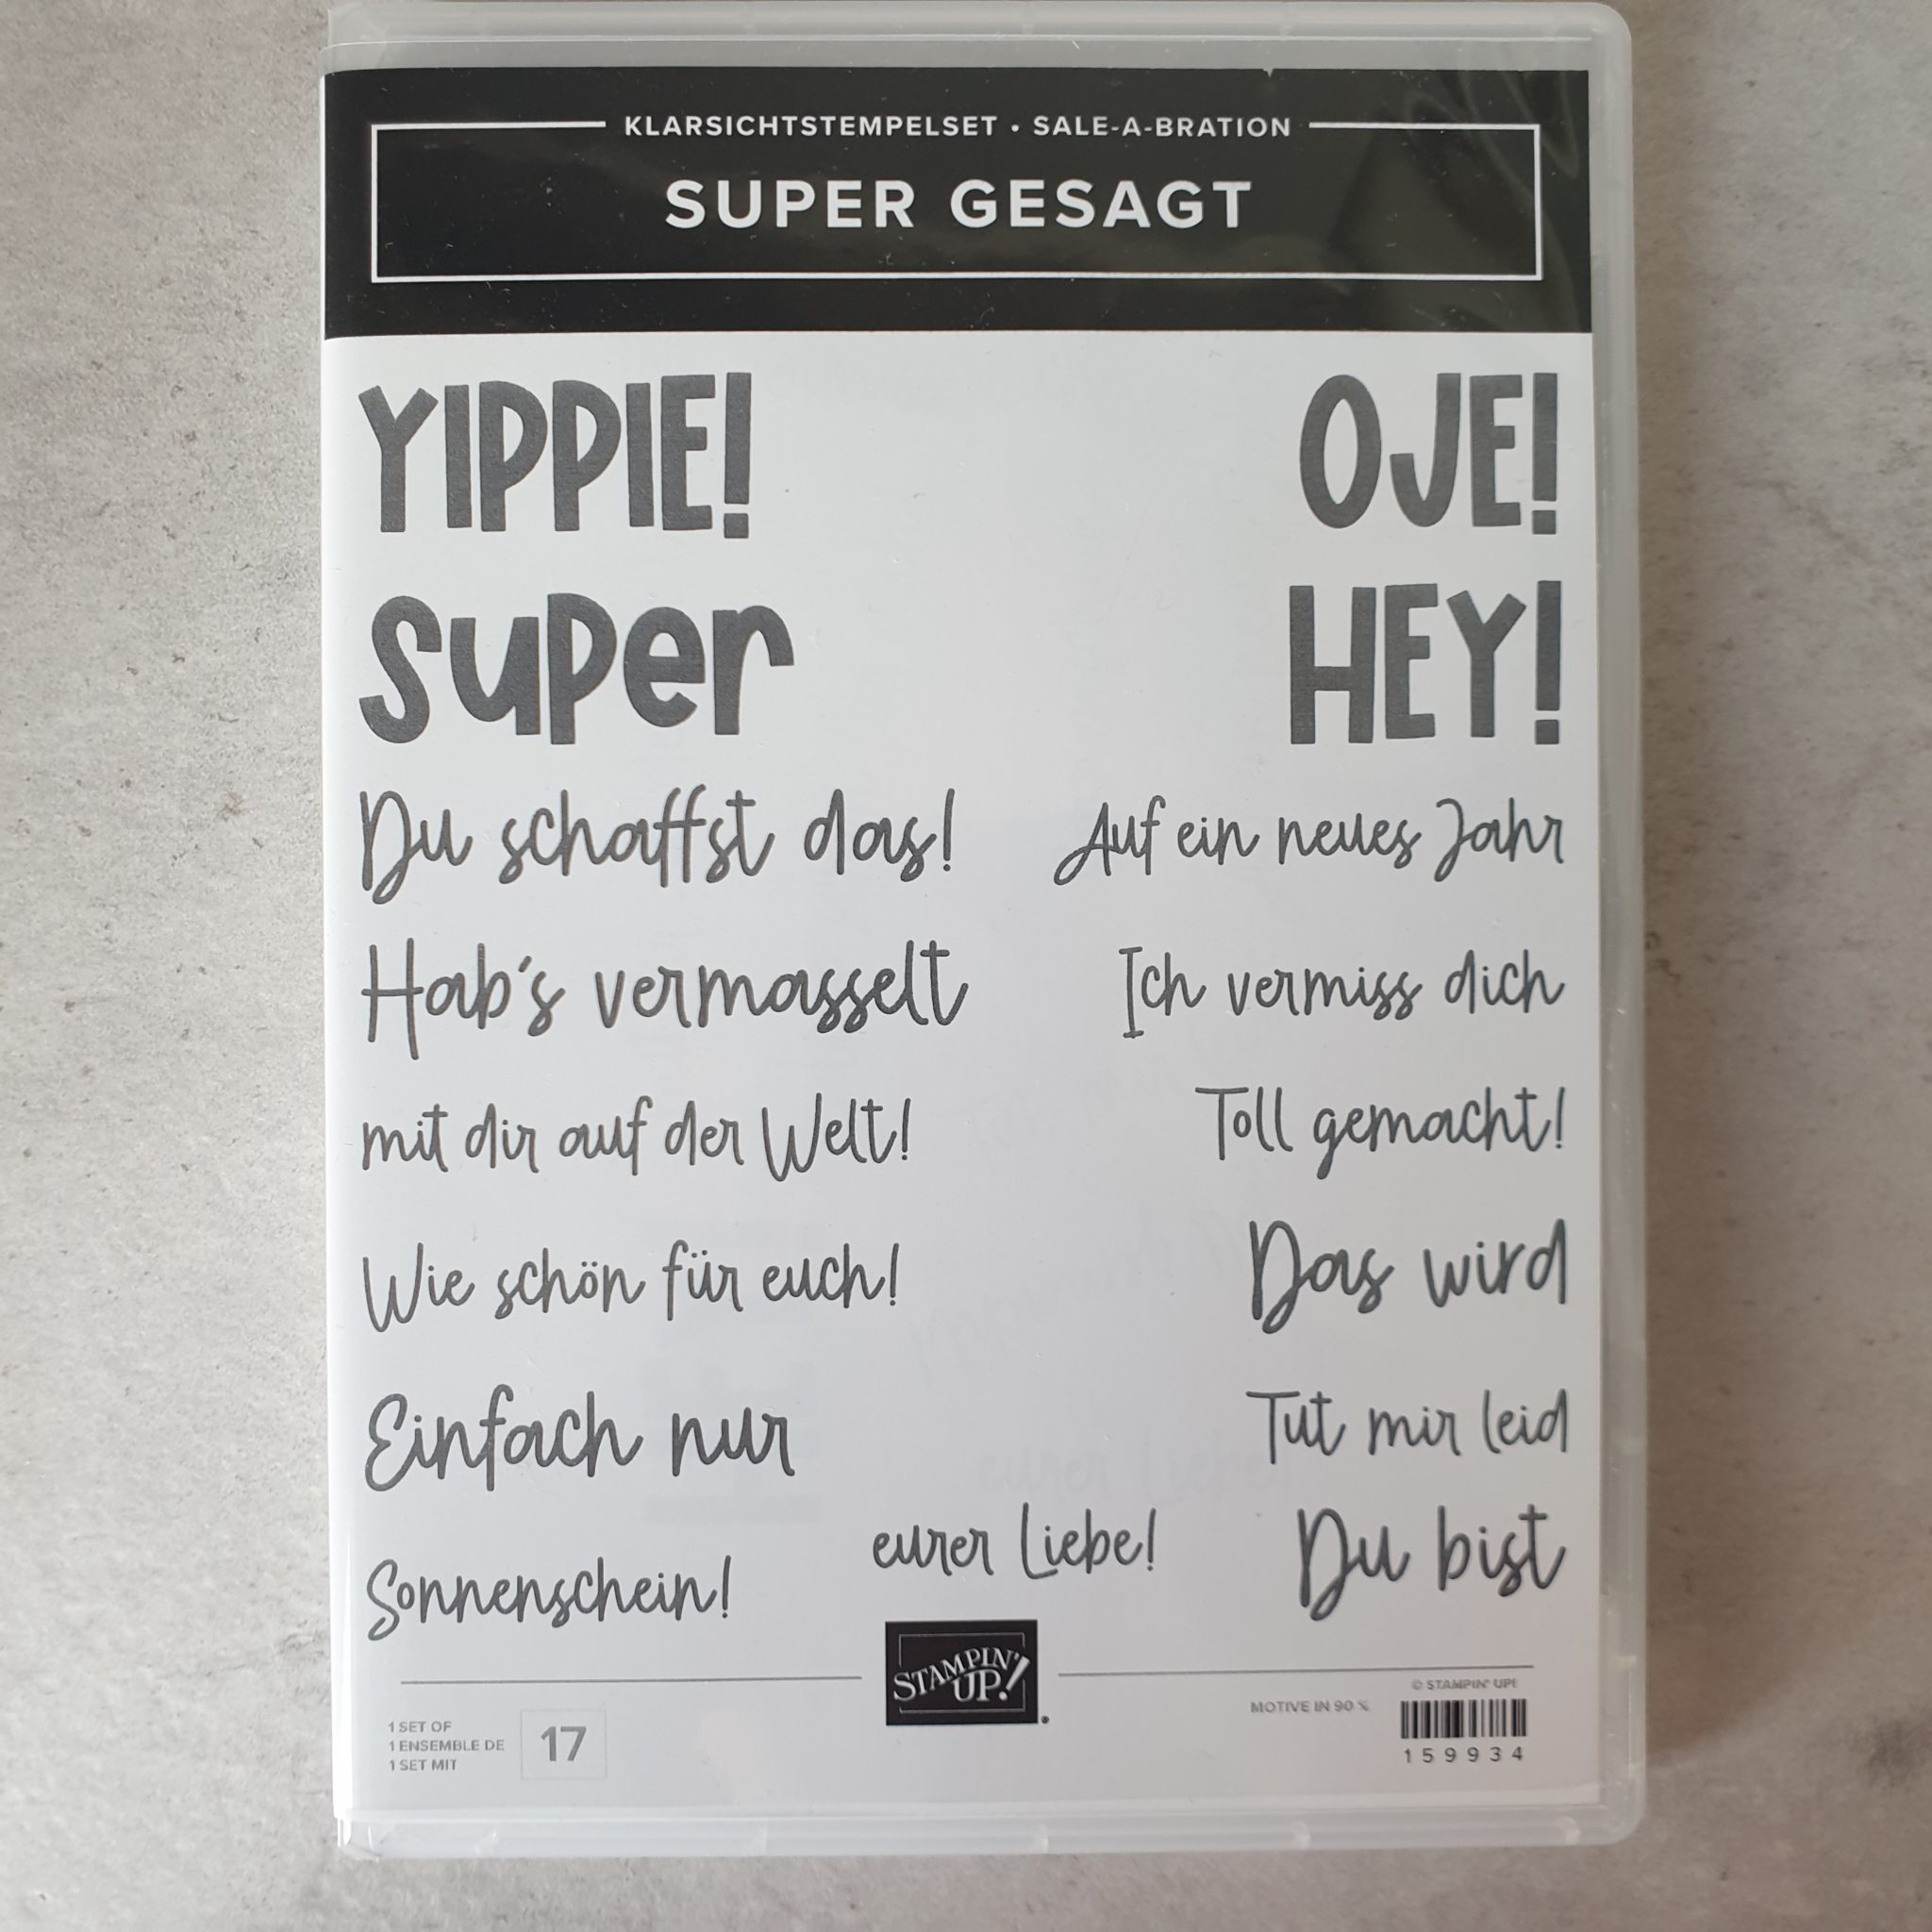 KLARSICHTSTEMPELSET • SALE-A-BRATION
SUPER GESAGT
YIPPIE!
OJE!
super
HEY!
Du schaffst das!
Auf ein neues Jahr
Hab's vermasselt
Ich vermiss dich
mit dir auf der Welt!
Toll gemacht!
Wie schön für euch!
Das wird
Einfach nur
Tut mir leid
Sonnenschein!
eurer Liebe!
Du bist
STAMPIN' UP!®
1 SET OF
1 ENSEMBLE DE
1 SET MIT
17
MOTIVE IN 90 %
© STAMPIN' UP!
159934